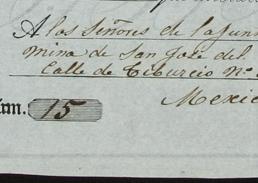 A los Señores de la Junt
Mina de San José del
Calle de Tiburcio Nº
Mexic
úm. 15